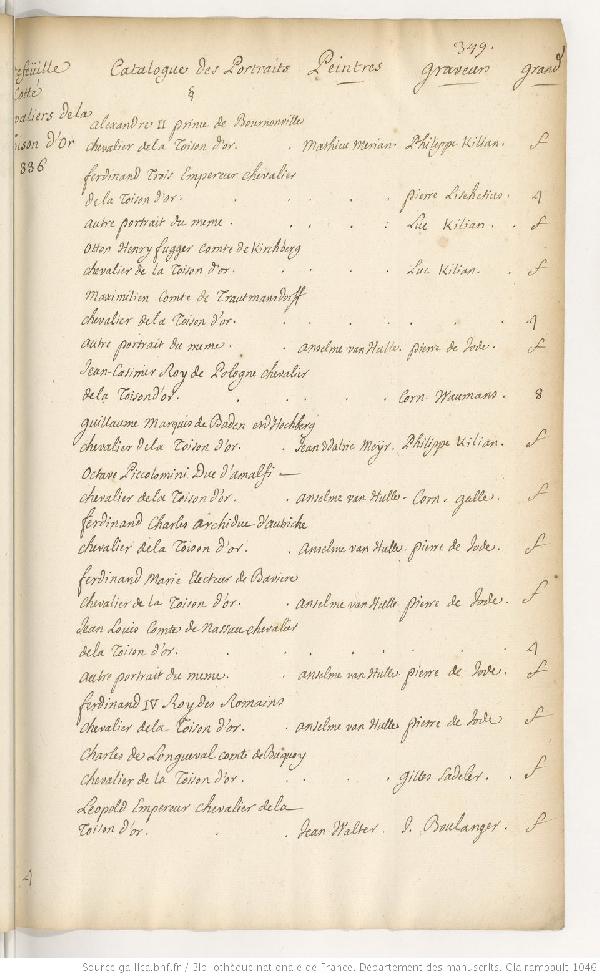 349.
Catalogue des Portraits Peintres graveurs grand
§
efeüille
Cotte
valiers de la
oison d'Or
1336
alexandre II prince de Bournonville
chevalier de la Toison d'or. Mathieu Merian. Philippe Kilian. f
ferdinand Trois Empereur chevalier
de la Toison d'or. pierre Lisebetius. 4
autre portrait du meme. Luc Kilian. f
Otton Henry fugger Comte de Kirchberg
chevalier de la Toison d'or. Luc Kilian. f
Maximilien Comte de Trautmansdorff
chevalier de la Toison d'or. 4
autre portrait du meme. anselme van Hulle. pierre de Jode. f
Jean-Casimir Roy de Pologne chevalier
de la Toison d'or. Corn. Waumans. 8
guillaume Marquis de Baden et d'Hochberg
chevalier de la Toison d'or. Jean Meyr. Philippe Kilian. f
Octave Piccolomini Duc d'amalfi
chevalier de la Toison d'or. anselme van Hulle. Corn. galle. f
ferdinand Charles archiduc d'autriche
chevalier de la Toison d'or. Anselme van Hulle. pierre de Jode. f
ferdinand Marie Electeur de Baviere
chevalier de la Toison d'or. Anselme van Hulle pierre de Jode. f
Jean Louis Comte de Nassau chevalier
de la Toison d'or. 4
autre portrait du meme. anselme van Hulle. pierre de Jode. f
ferdinand IV Roy des Romains
chevalier de la Toison d'or. anselme van Hulle pierre de Jode f
Charles de Longueval comte de Bucquoy
chevalier de la Toison d'or. Gilles Sadeler. f
Leopold Empereur chevalier de la
Toison d'or. Jean Walter. J. Boulanger. f
4
Source gallica.bnf.fr / Bibliothèque nationale de France. Département des manuscrits. Clairambault 1046